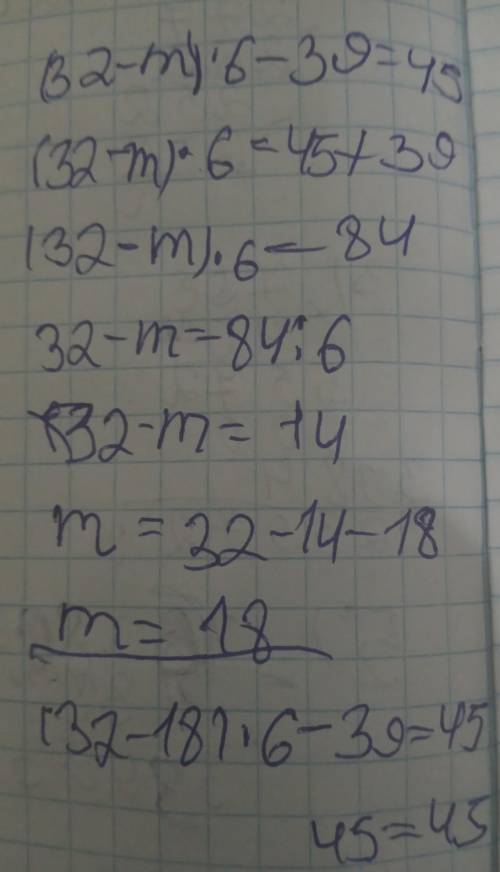 (32-m)·6-39=45
(32-m)·6=45+39
(32-m)·6=84
32-m=84:6
32-m=14
m=32-14-18
m=18
(32-18)·6-39=45
45=45